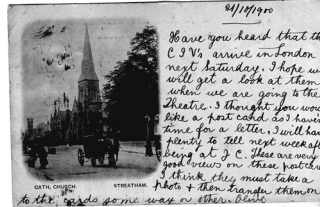 21/10/1900
Have you heard that the
C I V's arrive in London
next Saturday. I hope we
will get a look at them
when we are going to the
Theatre. I thought you would
like a post card as I haven't
time for a letter. I will have
plenty to tell next week after
being at J. C. These are very
good views on these post cards
I think they must take a
photo & then transfer them on
to the cards some way or other.
CATH. CHURCH. STREATHAM.